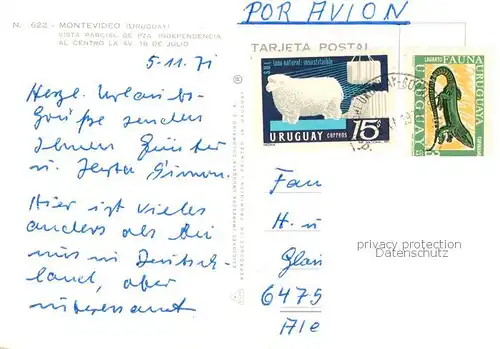 N. 622 - MONTEVIDEO (URUGUAY)
VISTA PARCIAL DE PZA INDEPENDENCIA
AL CENTRO LA AV. 18 DE JULIO
POR AVION
TARJETA POSTAL
5.11.71
Herzl. Urlaubs-
Grüße senden
Ihnen Günter
u. Herta Simon.
Hier ist vieles
anders als bei
uns in Deutsch-
land, aber
interessant
lana natural: insustituible
URUGUAY correos 15
LAGARTO FAUNA
URUGUAY
URUGUAY
Fam
H. u
6475
privacy protection
Datenschutz